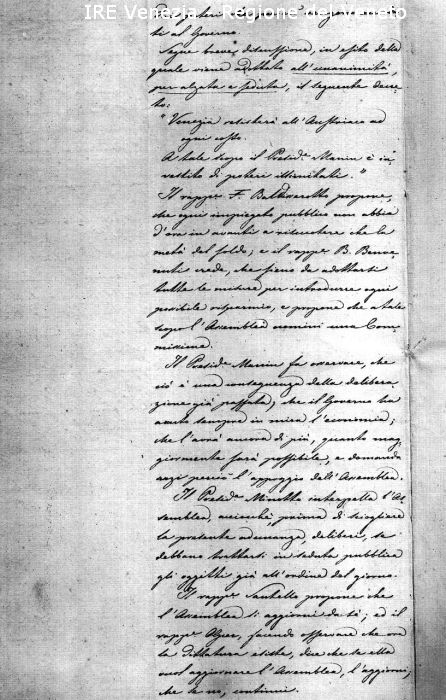 IRE Venezia - Regione del Veneto
ti al Governo.
Segue breve discussione, in esito della
quale viene adottato all'unanimità,
per alzata e seduta, il seguente decre-
to:
"Venezia resisterà all'Austriaco ad
ogni costo.
A tale scopo il Presid.e Manin è in-
vestito di poteri illimitati."
Il rapp.e F. Baldisserotto propone,
che ogni impiegato pubblico non abbia
d'ora in avanti a riscuotere che la
metà del soldo; e il rapp.e B. Benve-
nuti crede, che sieno da adottarsi
tutte le misure per introdurre ogni
possibile risparmio, e propone che a tale
scopo l'Assemblea nomini una Com-
missione.
Il Presid.e Manin fa osservare, che
ciò è una conseguenza della delibera-
zione già passata; che il Governo ha
avuto sempre in mira l'economia;
che l'avrà ancora di più, quanto mag-
giormente sarà possibile, e domanda
anzi perciò l'appoggio dell'Assemblea.
Il Presid.e Minotto interpella l'As-
semblea, acciocchè, prima di sciogliere
la presente adunanza, deliberi, se
debbano trattarsi in seduta pubblica
gli oggetti già all'ordine del giorno.
Il rapp.e propone che
l'Assemblea si aggiorni da sè; ed il
rapp.e facendo osservare che ora
la Dittatura esiste, dice che se ella
vuol aggiornare l'Assemblea, l'aggiorni,
che se no, continui.